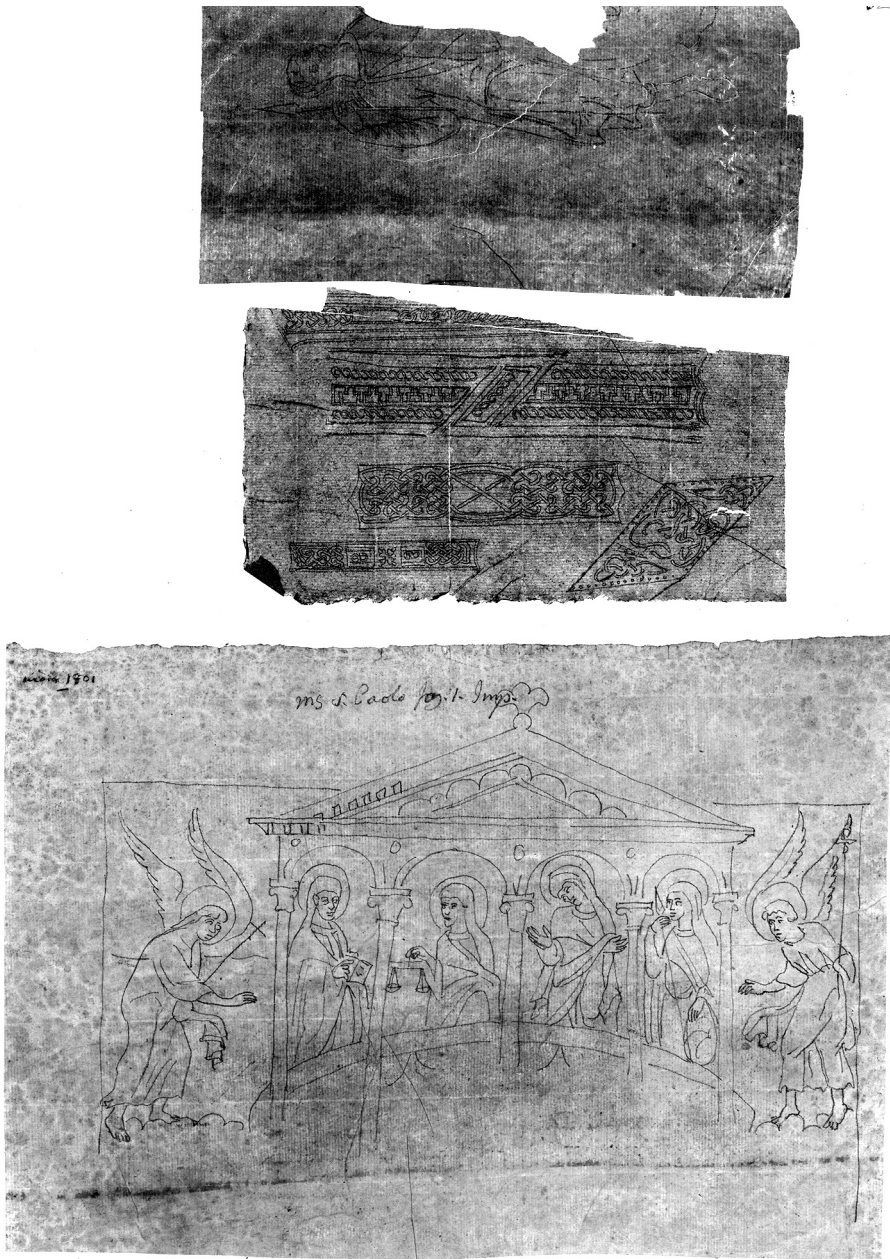 1801
MS S. Paolo fog. 1. Imp.